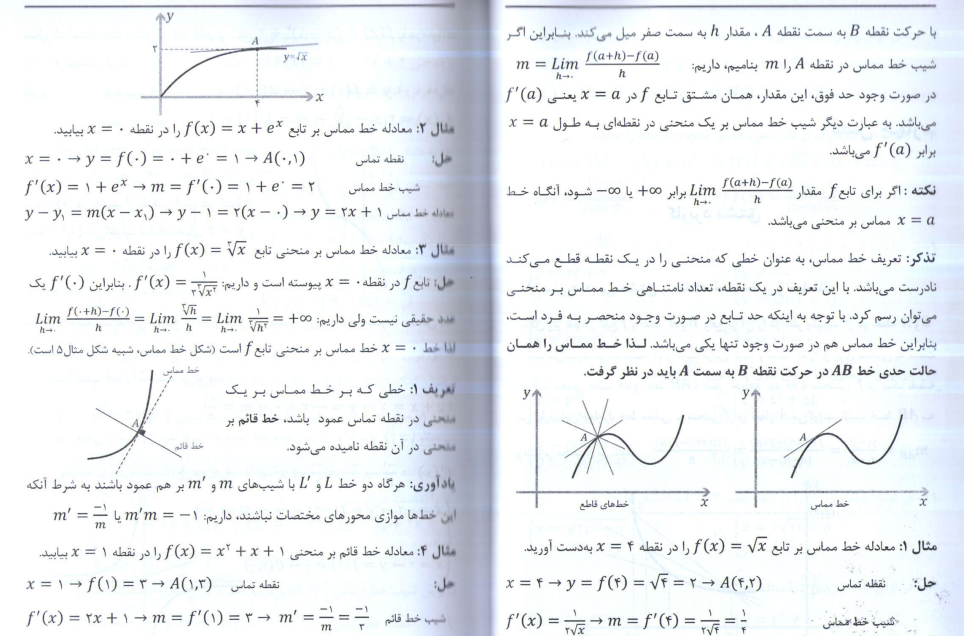 با حرکت نقطه B به سمت نقطه A ، مقدار h به سمت صفر میل می‌کند. بنابراین اگر
شیب خط مماس در نقطه A را m بنامیم، داریم: m = Lim h→۰ f(a+h)−f(a) / h
در صورت وجود حد فوق، این مقدار، همان مشتق تابع f در x = a یعنی f′(a)
می‌باشد. به عبارت دیگر شیب خط مماس بر یک منحنی در نقطه‌ای به طول x = a
برابر f′(a) می‌باشد.
نکته : اگر برای تابع f مقدار Lim h→۰ f(a+h)−f(a) / h برابر +∞ یا −∞ شود، آنگاه خط
x = a مماس بر منحنی می‌باشد.
تذکر: تعریف خط مماس، به عنوان خطی که منحنی را در یک نقطه قطع می‌کند
نادرست می‌باشد. با این تعریف در یک نقطه، تعداد نامتناهی خط مماس بر منحنی
می‌توان رسم کرد. با توجه به اینکه حد تابع در صورت وجود منحصر به فرد است،
بنابراین خط مماس هم در صورت وجود تنها یکی می‌باشد. لذا خط مماس را همان
حالت حدی خط AB در حرکت نقطه B به سمت A باید در نظر گرفت.
y
A
x
خط مماس
y
A
x
خط‌های قاطع
مثال ۱: معادله خط مماس بر تابع f(x) = √x را در نقطه x = ۴ به‌دست آورید.
حل: نقطه تماس x = ۴ → y = f(۴) = √۴ = ۲ → A(۴,۲)
شیب خط مماس f′(x) = ۱/۲√x → m = f′(۴) = ۱/۲√۴ = ۱/۴
y
۲
A
y=√x
۴
x
مثال ۲: معادله خط مماس بر تابع f(x) = x + eˣ را در نقطه x = ۰ بیابید.
حل: نقطه تماس x = ۰ → y = f(۰) = ۰ + e⁰ = ۱ → A(۰,۱)
شیب خط مماس f′(x) = ۱ + eˣ → m = f′(۰) = ۱ + e⁰ = ۲
معادله خط مماس y − y₁ = m(x − x₁) → y − ۱ = ۲(x − ۰) → y = ۲x + ۱
مثال ۳: معادله خط مماس بر منحنی تابع f(x) = ∛x را در نقطه x = ۰ بیابید.
حل: تابع f در نقطه x = ۰ پیوسته است و داریم: f′(x) = ۱/۳∛x² . بنابراین f′(۰) یک
عدد حقیقی نیست ولی داریم: Lim h→۰ f(۰+h)−f(۰) / h = Lim h→۰ ∛h / h = Lim h→۰ ۱/∛h² = +∞
لذا خط x = ۰ خط مماس بر منحنی تابع f است (شکل خط مماس، شبیه شکل مثال۵ است).
تعریف ۱: خطی که بر خط مماس بر یک
منحنی در نقطه تماس عمود باشد، خط قائم بر
منحنی در آن نقطه نامیده می‌شود.
خط مماس
A
خط قائم
یادآوری: هرگاه دو خط L و L′ با شیب‌های m و m′ بر هم عمود باشند به شرط آنکه
این خط‌ها موازی محورهای مختصات نباشند، داریم: m′m = −۱ یا m′ = −۱/m
مثال ۴: معادله خط قائم بر منحنی f(x) = x² + x + ۱ را در نقطه x = ۱ بیابید.
حل: نقطه تماس x = ۱ → f(۱) = ۳ → A(۱,۳)
شیب خط قائم f′(x) = ۲x + ۱ → m = f′(۱) = ۳ → m′ = −۱/m = −۱/۳